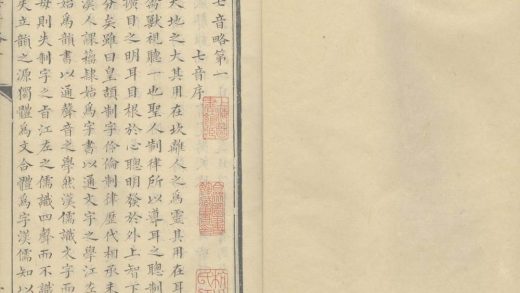 七音略第一
七音序
天地之大其用在坎離人之為靈其用在耳
禽獸視聽一也聖人制律所以導耳之聰制
目之明耳目根於心聰明發於外上智下
分矣雖曰皇頡制字伶倫制律歷代相承未
漢人課籀隸始為字書以通文字之學江左
始為韻書以通聲音之學然漢儒識文字而
母則失制字之旨江左之儒識四聲而不識
失立韻之源獨體為文合體為字漢儒知以